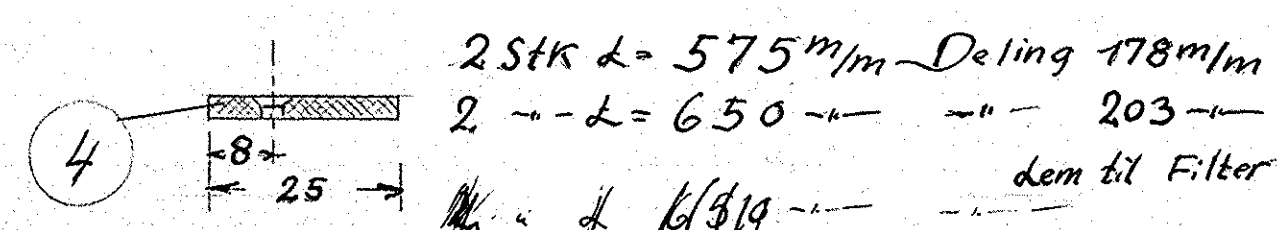 2 Stk L = 575 m/m Deling 178 m/m
2 -"- L = 650 -"- -"- 203 -"-
4
8
25
til Filter